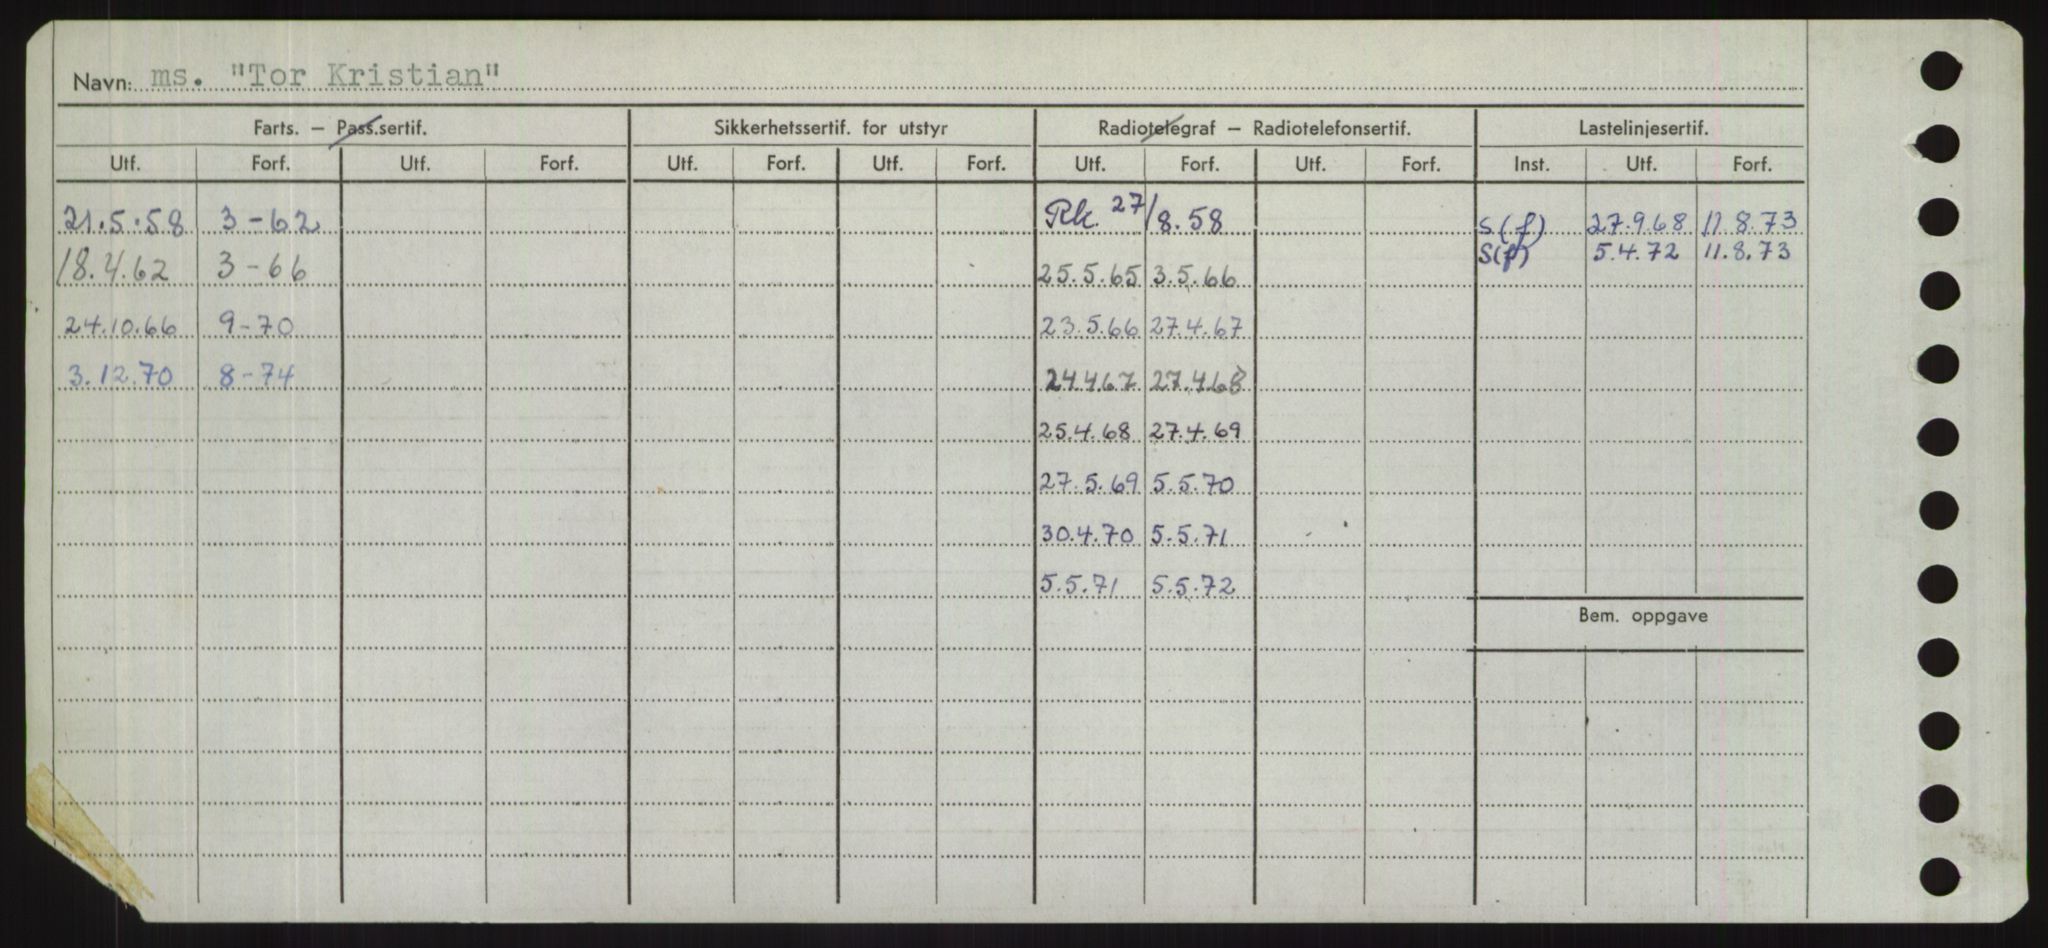 Navn: ms. "Tor Kristian"
Farts. – Pass.sertif. Sikkerhetssertif. for utstyr Radiotelegraf – Radiotelefonsertif. Lastelinjesertif.
Utf. Forf. Utf. Forf. Utf. Forf. Utf. Forf. Utf. Forf. Utf. Forf. Inst. Utf. Forf.
21.5.58 3-62 Rk. 27/8.58 S(f) 27.9.68 11.8.73
S(f) 5.4.72 11.8.73
18.4.62 3-66 25.5.65 3.5.66
24.10.66 9-70 23.5.66 27.4.67
3.12.70 8-74 24.4.67 27.4.68
25.4.68 27.4.69
27.5.69 5.5.70
30.4.70 5.5.71
5.5.71 5.5.72
Bem. oppgave